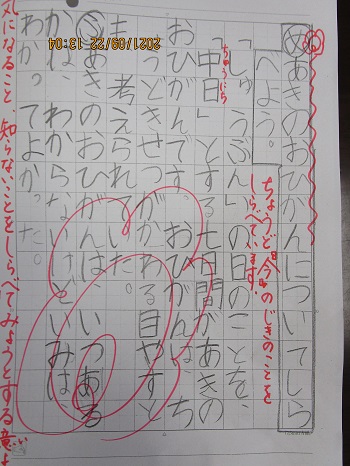 めあきのおひがんについてしら
べよう。
ちょうど"今"のじきのことを
しらべています。
「しゅうぶん」の日のことを、
ちゅうにち
「中日」とする七日間があきの
おひがんです。おひがんは、ち
ょうどきせつがかわる目やすと
も考えられていた。
あきのおひがんは、いつある
かは、わからないけどいみは
わかってよかった。
気になること、知らないことをしらべてみようとする意よ
2021/09/22 13:04